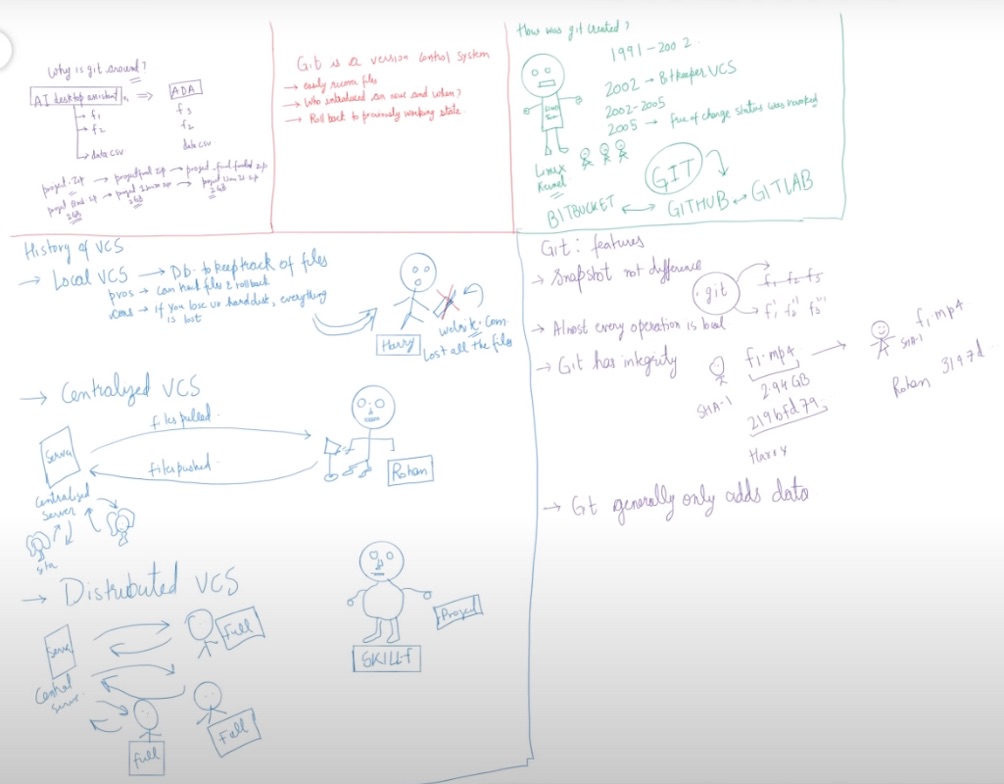 Why is git around?
AI desktop assistant ⇒ ADA
→ f1
→ f2
→ data csv
f3
f2
data csv
project.zip → projectfinal zip → project
2GB
2GB
2GB
Git is a version control system
→ easily recover files
→ Who introduced an issue and when?
→ Roll back to previously working state.
How was git created?
1991-2002
2002 → Bitkeeper VCS
2002-2005
2005 → free of charge status was revoked
Linux
Kernel
GIT
BITBUCKET ↔ GITHUB ↔ GITLAB
History of VCS
→ Local VCS → Db. to keep track of files
pros → Can track files & rollback
cons → If you lose ur hard disk, everything
is lost
Harry
Lost all the files
→ Centralized VCS
files pulled
Server
files pushed
Rohan
Centralized
Server
→ Distributed VCS
Server
Full
Central
Server
Full
Full
SKILLF
Project
Git: features
→ Snapshot not difference
git
f1 f2 f3
f1' f2'' f3'''
→ Almost every operation is local
→ Git has integrity
f1.mp4
f1.mp4
SHA-1
SHA-1
2.94 GB
Rohan 3197d
219bfd79
Harry
→ Git generally only adds data